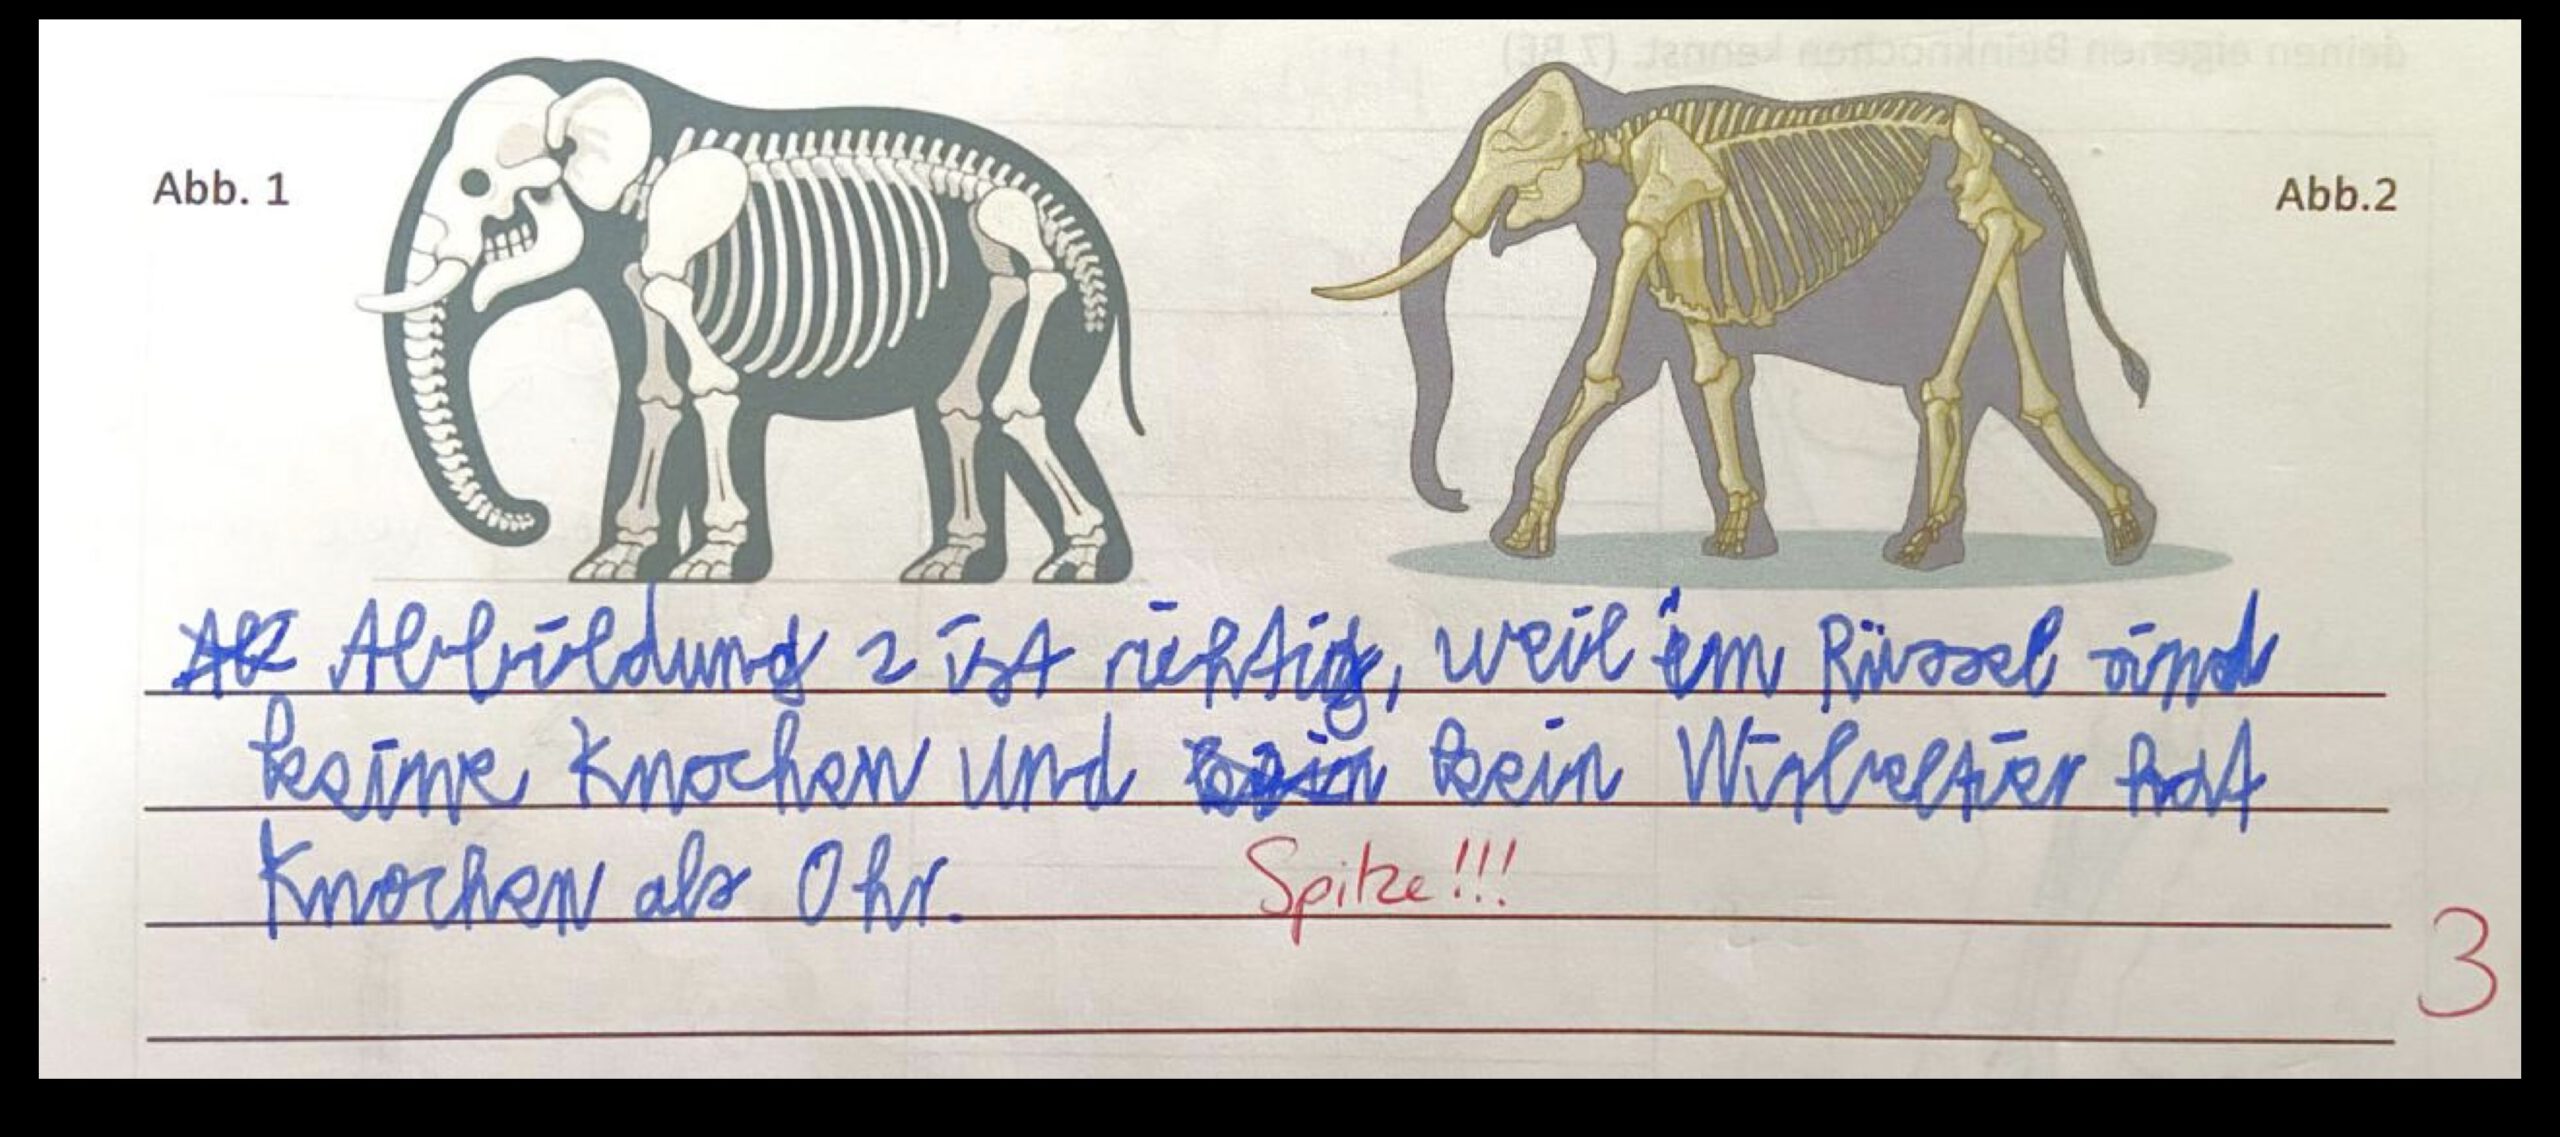 deinen eigenen Beinknochen kennst. (7 BE)
Abb. 1
Abb.2
Abbildung 2 ist richtig, weil im Rüssel sind
keine Knochen und kein Wirbeltier hat
Knochen als Ohr.
Spitze!!!
3